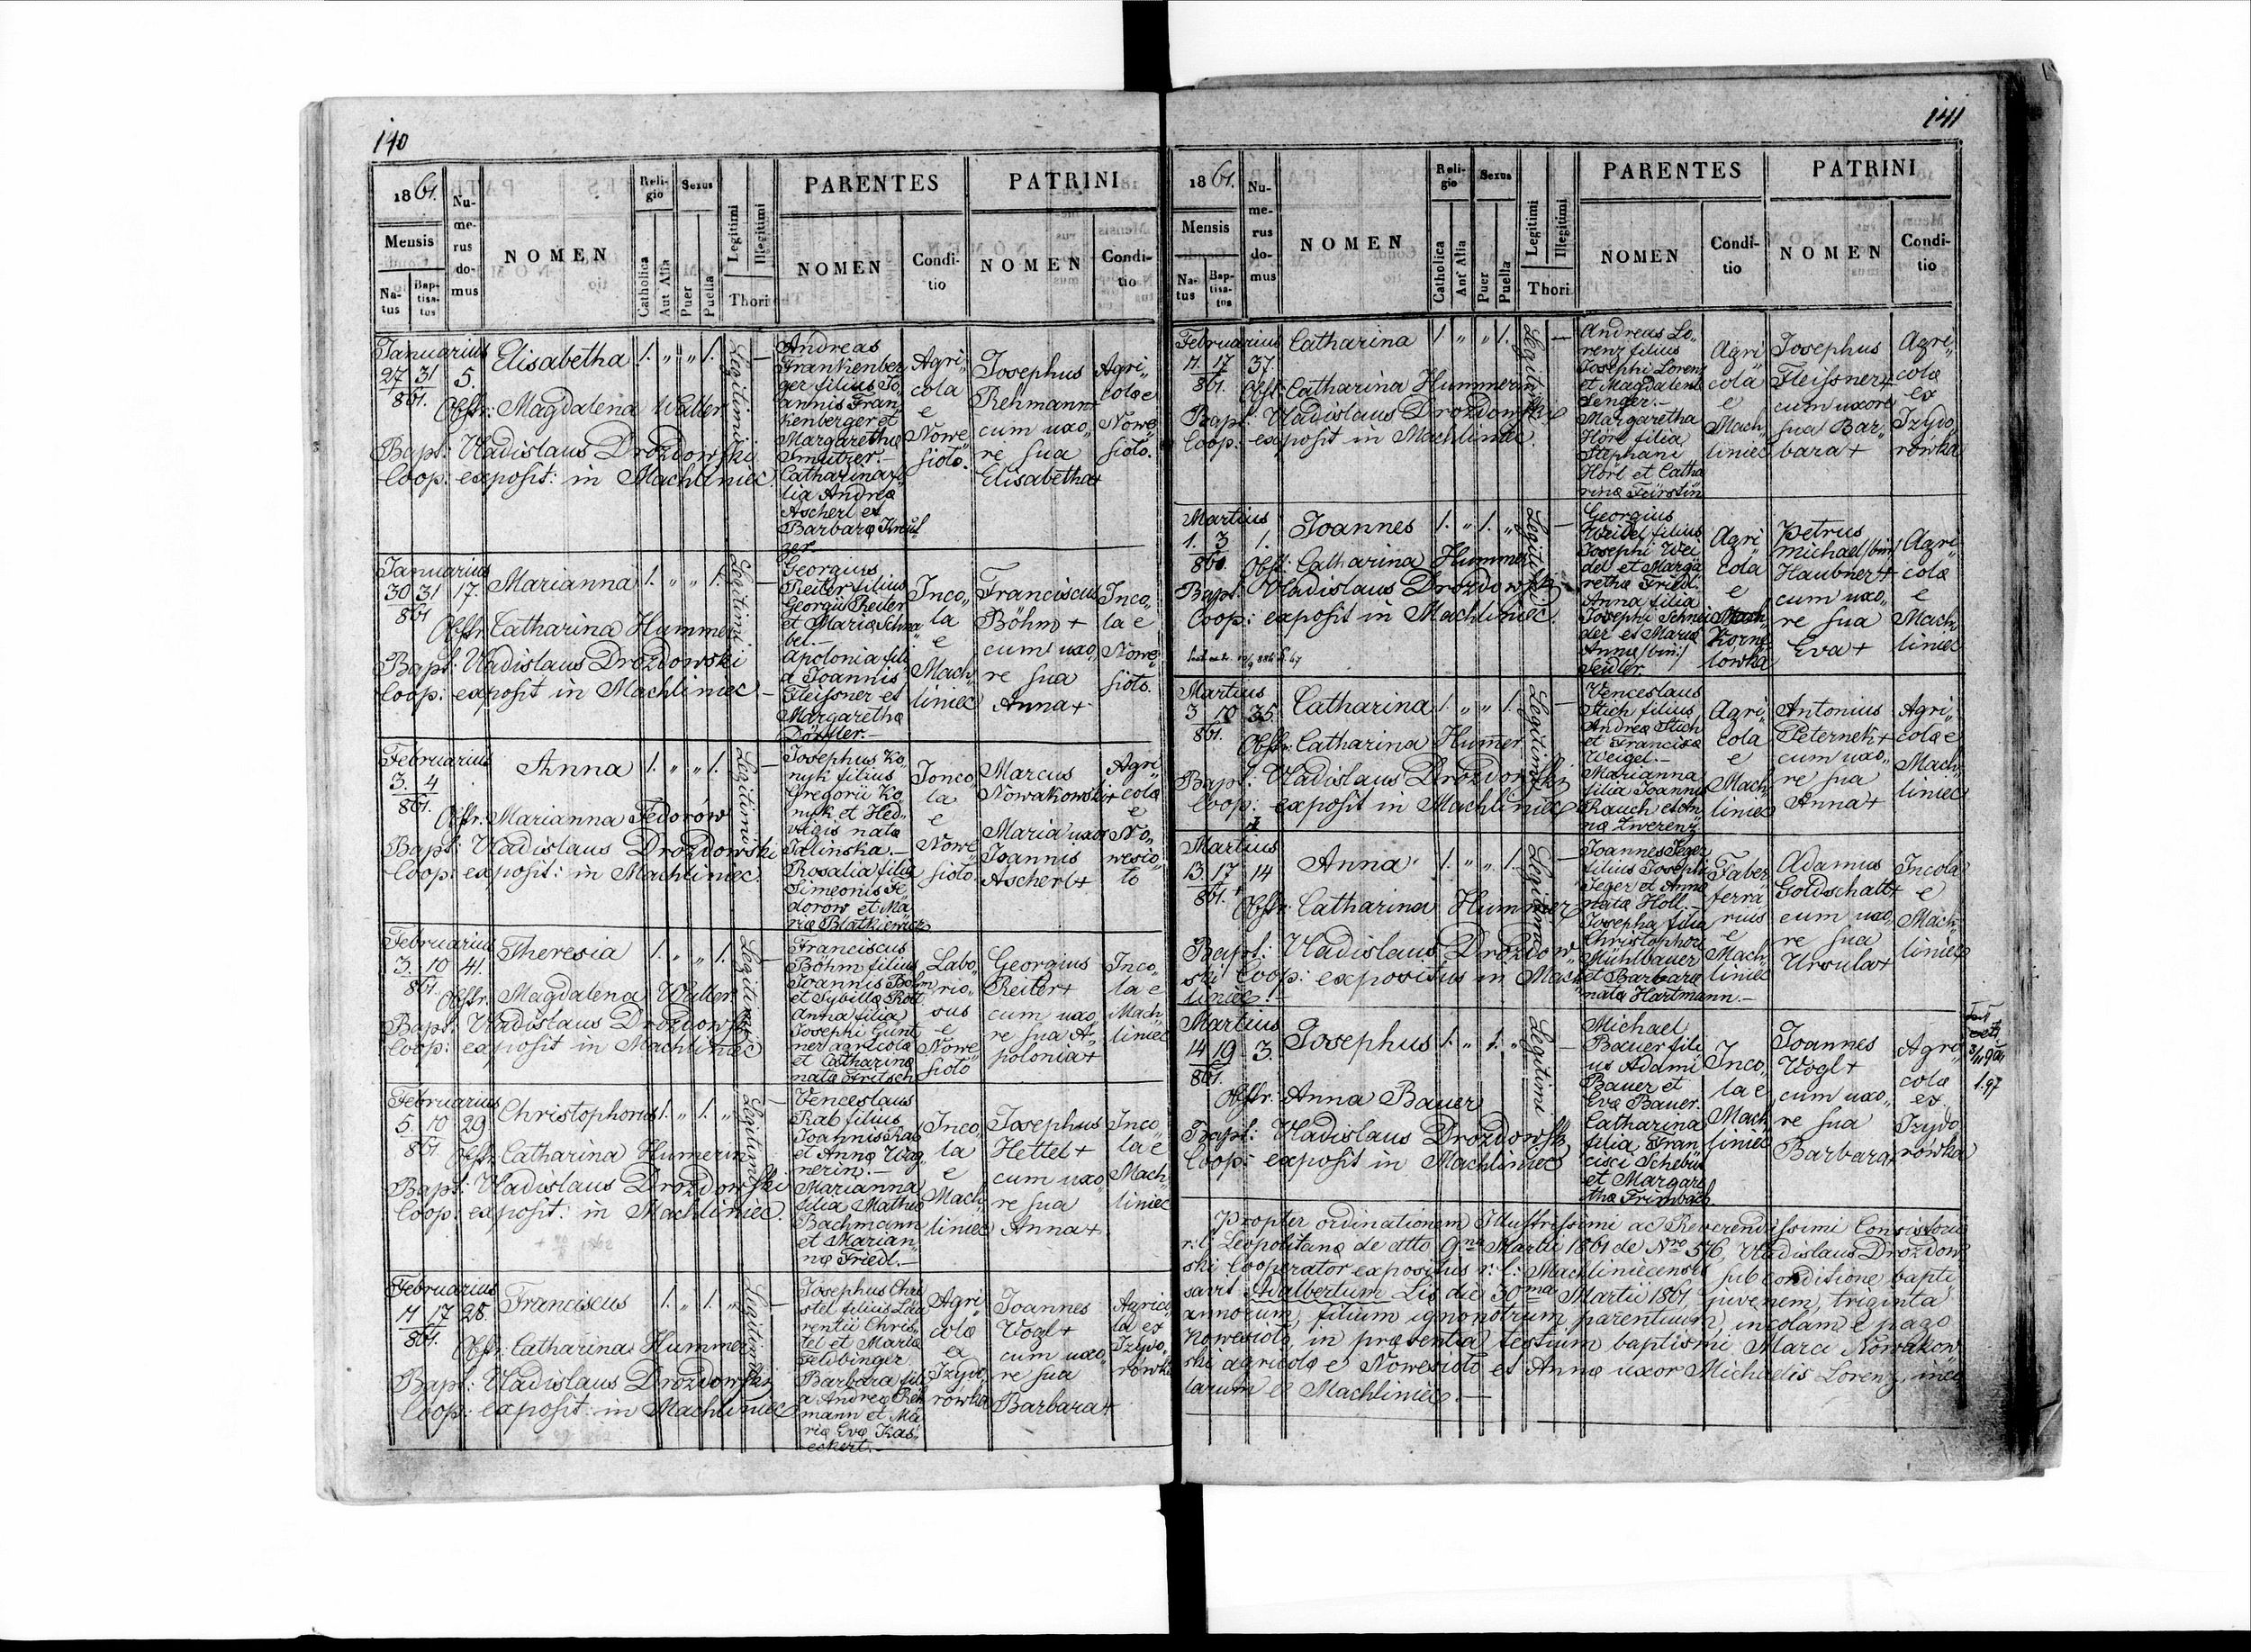 140
1861.
Numerus domus
NOMEN
Religio
Sexus
Legitimi
Illegitimi
Thori
PARENTES
PATRINI
Mensis
Natus
Baptisatus
Catholica
Aut Alia
Puer
Puella
NOMEN
Conditio
NOMEN
Conditio
Januarius
27 31 5.
861.
Elisabetha 1. " " 1.
Legitimi
Obstr: Magdalena Walter
Bapt: Vladislaus Drozdowski
Coop: exposit: in Machliniec.
Andreas
Frankenber
ger filius Jo
annis Fran
kenberger et
Margaretha
Smutzer.—
Catharina fi
lia Andreæ
Ascherl et
Barbaræ Kreut
zer.
Agri„
cola
e
Nowe
sioto.
Josephus
Rehmann+
cum uxo„
re sua
Elisabetha+
Agri„
colæ e
Nowe„
sioto.
Januarius
30 31 17.
861
Marianna 1. " " 1.
Legitimi
Obstr. Catharina Hummer
Bapt: Vladislaus Drozdowski
Coop: exposit in Machliniec –
Georgius
Reiter filius
Georgii Reiter
et Mariæ Schna
bel.—
Apolonia fili
a Joannis
Fleissner et
Margarethæ
Dörfler.—
Inco„
la
e
Mach„
liniec
Franciscus
Böhm +
cum uxo„
re sua
Anna+
Inco„
la e
Nowe„
sioto.
Februarius
3. 4
861.
Anna 1. " " 1.
Legitimi
Obstr. Marianna Fedorów
Bapt: Vladislaus Drozdowski
Coop: exposit: in Machliniec.
Josephus Ko„
nyk filius
Gregorii Ko
nyk et Hed„
vigis natæ
Jalinska.—
Rosalia filia
Simeonis Fe
dorow et Ma
riæ Blatkiewicz
Jonco„
la
e
Nowe
sioto.
Marcus
Nowakowski+
Maria uxor
Joannis
Ascherl+
Agri„
cola
e
No„
wesio
to
Februarius
3. 10 41.
861
Theresia 1. " " 1.
Legitimi
Obstr. Magdalena Walter
Bapt: Vladislaus Drozdowski
Coop: exposit in Machliniec
Franciscus
Böhm filius
Joannis Böhm
et Sybillæ Rott
Anna filia
Josephi Günt
ner agricolæ
et Catharinæ
natæ Fritsch
Labo„
rio„
sus
e
Nowe
sioto
Georgius
Reiter+
cum uxo
re sua A„
polonia+
Inco„
la e
Mach„
liniec
Februarius
5. 10 29
861
Christophorus 1. " 1. "
Legitimi
Obstr. Catharina Humerin
Bapt: Vladislaus Drozdowski
Coop: exposit: in Machliniec.
Venceslaus
Rab filius
Joannis Rab
et Annæ Wag
nerin.—
Marianna
filia Mathiæ
Bachmann
et Marian„
næ Friedl.—
Inco„
la
e
Mach„
liniec
Josephus
Hettel +
cum uxo
re sua
Anna+
Inco„
la e
Mach„
liniec
Februarius
11 17 28.
861.
Franciscus 1. " 1. "
Legitimi
Obstr. Catharina Hummer
Bapt: Vladislaus Drozdowski
Coop: exposit: in Machliniec
Josephus Chri
stel filius Lau
rentii Chris„
tel et Mariæ
Feldbinger
Barbara fili
a Andreæ Reh
mann et Ma
riæ Evæ Kas„
eckert.—
Agri„
cola
ex
Izydo„
rówka
Joannes
Vogl+
cum uxo„
re sua
Barbara+
Agrico„
la ex
Izydo„
rówka
141
1861.
Numerus domus
NOMEN
Religio
Sexus
Legitimi
Illegitimi
Thori
PARENTES
PATRINI
Mensis
Natus
Baptisatus
Catholica
Aut Alia
Puer
Puella
NOMEN
Conditio
NOMEN
Conditio
Februarius
11. 17 37.
861.
Catharina 1. " " 1.
Legitimi
Obst: Catharina Hummerin
Bapt: Vladislaus Drozdowski
Coop: exposit in Machliniec.
Andreas Lo„
renz filius
Josephi Lorenz
et Magdalenæ
Senger.—
Margaretha
Hörl filia
Stephani
Hörl et Catha
rinæ Fürstin
Agri
cola
e
Mach„
liniec
Josephus
Fleissner+
cum uxore
sua Bar„
bara+
Agri„
colæ
ex
Izydo„
rówka
Martius
1. 3 1.
861.
Joannes 1. " 1. "
Legitimi
Obst: Catharina Hummer
Bapt: Vladislaus Drozdowski
Coop: exposit in Machliniec.
Georgius
Weidel filius
Josephi Wei
del et Marga
rethæ Friedl.
Anna filia
Josephi Schnei
der et Mariæ
Annæ /bin:/
Seidler.
Agri
cola
e
Korne
lówka
Petrus
Michael /bin:/
Haubner+
cum uxo„
re sua
Eva+
Agri„
colæ
e
Mach„
liniec
Martius
3 10 35.
861.
Catharina 1. " " 1.
Legitimi
Obstr: Catharina Humer
Bapt: Vladislaus Drozdowski
Coop: exposit in Machliniec
Venceslaus
Stich filius
Andreæ Stich
et Franciscæ
Weigel.—
Marianna
filia Joannis
Rauch et An„
næ Zwerenz
Agri„
cola
e
Mach
liniec
Antonius
Peternek+
cum uxo„
re sua
Anna+
Agri„
colæ e
Mach„
liniec
Martius
13. 17 14
861.
Anna 1. " " 1.
Legitimi
Obstr: Catharina Hummer
Bapt: Vladislaus Drozdow„
ski Coop: expositus in Mach
liniec.—
Joannes Jeger
filius Josephi
Jeger et Annæ
natæ Holl.—
Josepha filia
Christophori
Mühlbauer
et Barbaræ
natæ Hartmann.—
Faber
ferra
rius
e
Mach„
liniec
Adamus
Goldschalt+
cum uxo„
re sua
Ursula+
Incola
e
Mach„
liniec
Martius
14 19 3.
861.
Josephus 1. " 1. "
Legitimi
Obstr. Anna Bauer
Bapt: Vladislaus Drozdowski
Coop: exposit in Machliniec
Michael
Bauer fili
us Adami
Bauer et
Evæ Bauer.
Catharina
filia Fran
cisci Schebür
et Margare
thæ Frimbach.
Inco„
la e
Mach
liniec
Joannes
Vogl+
cum uxo„
re sua
Barbara+
Agri
colæ
ex
Izydo
rówka
Propter ordinationem Illustrissimi ac Reverendissimi Consistorii
r: l: Leopolitanæ de dtto 9na Martii 1861 de Nro 576, Vladislaus Drozdow
ski Cooperator expositus r: l: Machliniecensis sub conditione bapti
savit Adalbertum Lis die 30ma Martii 1861, juvenem, triginta
annorum, filium ignonotrum parentium, incolam e pago
Nowesioto, in præsentia testium baptismi, Marci Nowakow
ski agricolæ e Nowesioto et Annæ uxor Michaelis Lorenz, inco
larum e Machliniec.—